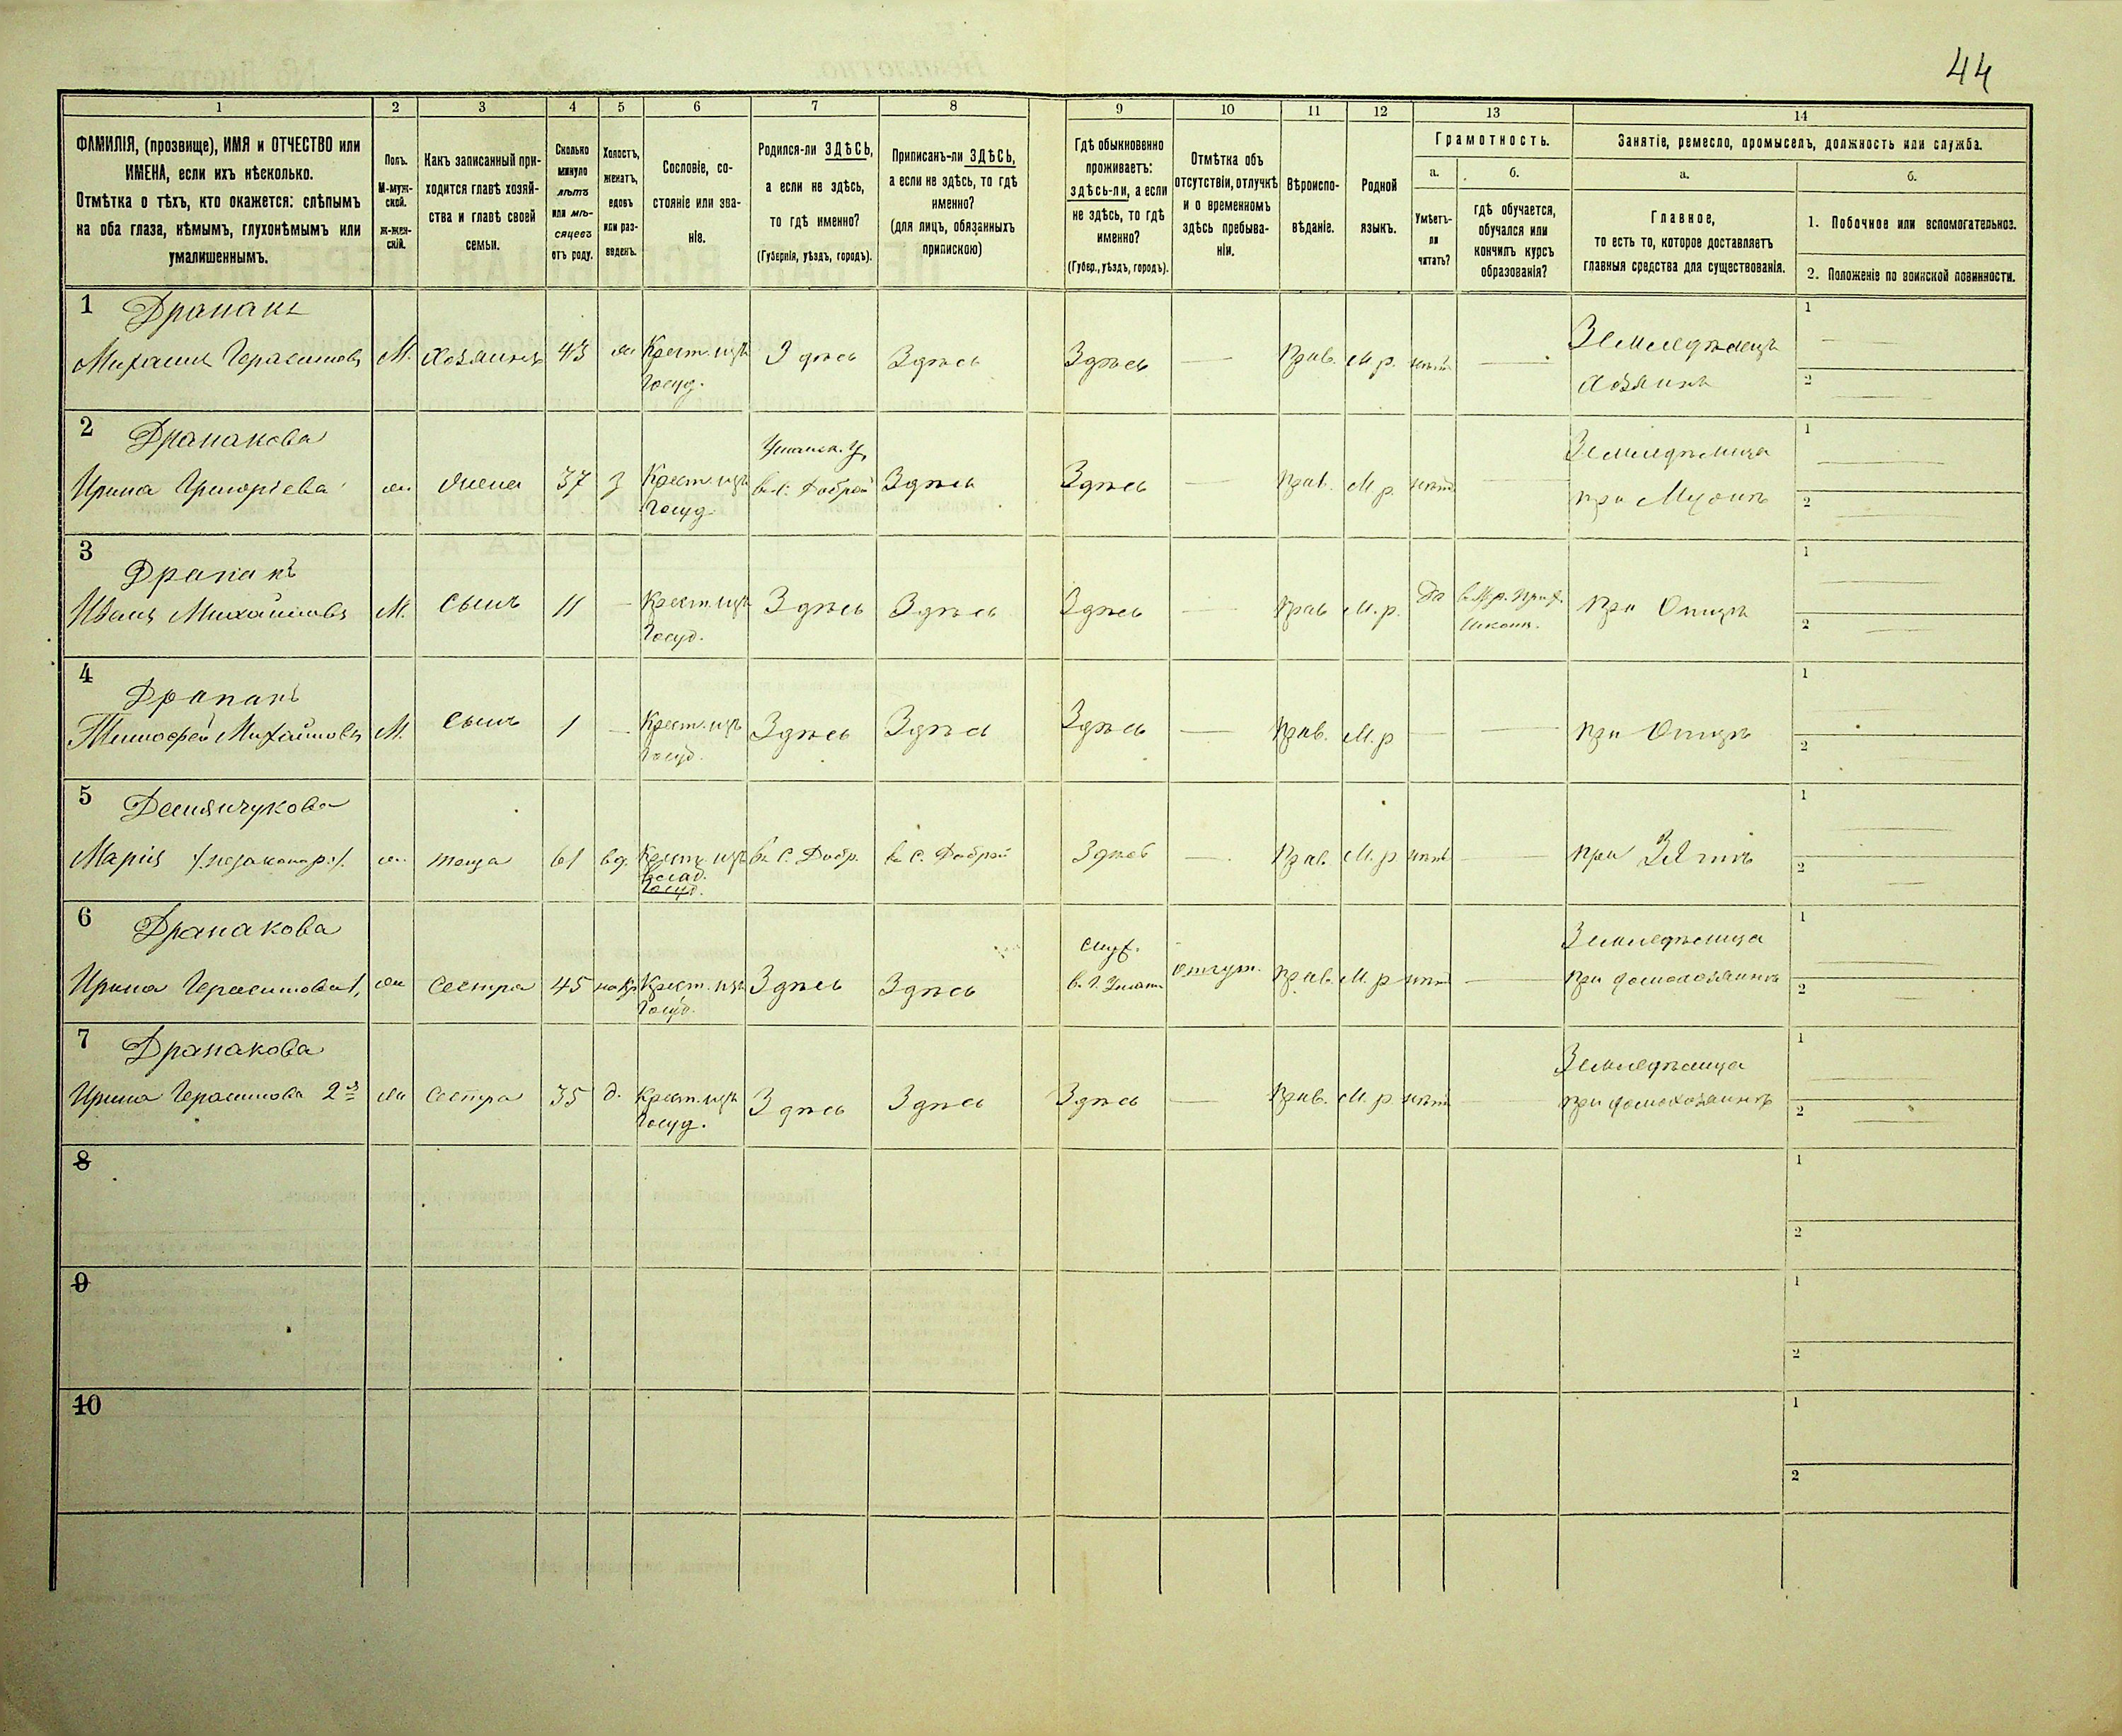 44
1 2 3 4 5 6 7 8 9 10 11 12 13 14
ФАМИЛІЯ, (прозвище), ИМЯ и ОТЧЕСТВО или
ИМЕНА, если ихъ нѣсколько.
Отмѣтка о тѣхъ, кто окажется: слѣпымъ
на оба глаза, нѣмымъ, глухонѣмымъ или
умалишеннымъ.
Полъ.
М-муж-
ской.
ж-жен-
скій.
Какъ записанный при-
ходится главѣ хозяй-
ства и главѣ своей
семьи.
Сколько
минуло
лѣтъ
или мѣ-
сяцевъ
отъ роду.
Холостъ,
женатъ,
вдовъ
или раз-
веденъ.
Сословіе, со-
стояніе или зва-
ніе.
Родился-ли ЗДѢСЬ,
а если не здѣсь,
то гдѣ именно?
(Губернія, уѣздъ, городъ).
Приписанъ-ли ЗДѢСЬ,
а если не здѣсь, то гдѣ
именно?
(для лицъ, обязанныхъ
припискою)
Гдѣ обыкновенно
проживаетъ:
здѣсь-ли, а если
не здѣсь, то гдѣ
именно?
(Губер., уѣздъ, городъ).
Отмѣтка объ
отсутствіи, отлучкѣ
и о временномъ
здѣсь пребыва-
ніи.
Вѣроиспо-
вѣданіе.
Родной
языкъ.
Грамотность.
а.
Умѣетъ-
ли
читать?
б.
гдѣ обучается,
обучался или
кончилъ курсъ
образованія?
Занятіе, ремесло, промыселъ, должность или служба.
а.
Главное,
то есть то, которое доставляетъ
главныя средства для существованія.
б.
1. Побочное или вспомогательное.
2. Положеніе по воинской повинности.
1 Драпакъ
Михаилъ Герасимовъ М. Хозяинъ 43 ж Крест. изъ Здѣсь Здѣсь Здѣсь — Прав. М.р. нѣтъ — Земледѣлецъ
Госуд. хозяинъ
1
2
2 Драпакова
Ирина Григорієва ж. Жена 37 з Крест. изъ
Госуд.
Уманск. у.
в с. Доброй Здѣсь Здѣсь Прав. М.р. нѣтъ — Земледѣлица
при Мужѣ
1
2
3 Драпакъ
Иванъ Михайловъ М. Сынъ 11 — Крест. изъ Здѣсь Здѣсь Здѣсь — Прав. М.р. да
Госуд.
школѣ.
при Отцѣ
1
2
4 Драпакъ
Тимофей Михайловъ М. Сынъ 1 — Крест. изъ Здѣсь Здѣсь Здѣсь — Прав. М.р — — при Отцѣ
Госуд.
1
2
5 Демянчукова
Марія /незаконор:/. ж. теща 61 вд. Крест. изъ в с. Добр. в с. Доброй Здѣсь — Прав. М.р нѣтъ — при Зятѣ
Госуд.
1
2
6 Драпакова
Ирина Герасимова 1, ж Сестра 45 Крест. изъ Здѣсь Здѣсь
Госуд.
в. г. Умани отлуч. Прав. М.р нѣтъ — Земледѣлица
при домохозяинѣ
1
2
7 Драпакова
Ирина Герасимова 2я ж Сестра 35 д. Крест. изъ Здѣсь Здѣсь Здѣсь — Прав. М.р нѣтъ — Земледѣлица
Госуд. при домохозяинѣ
1
2
8
1
2
9
1
2
10
1
2